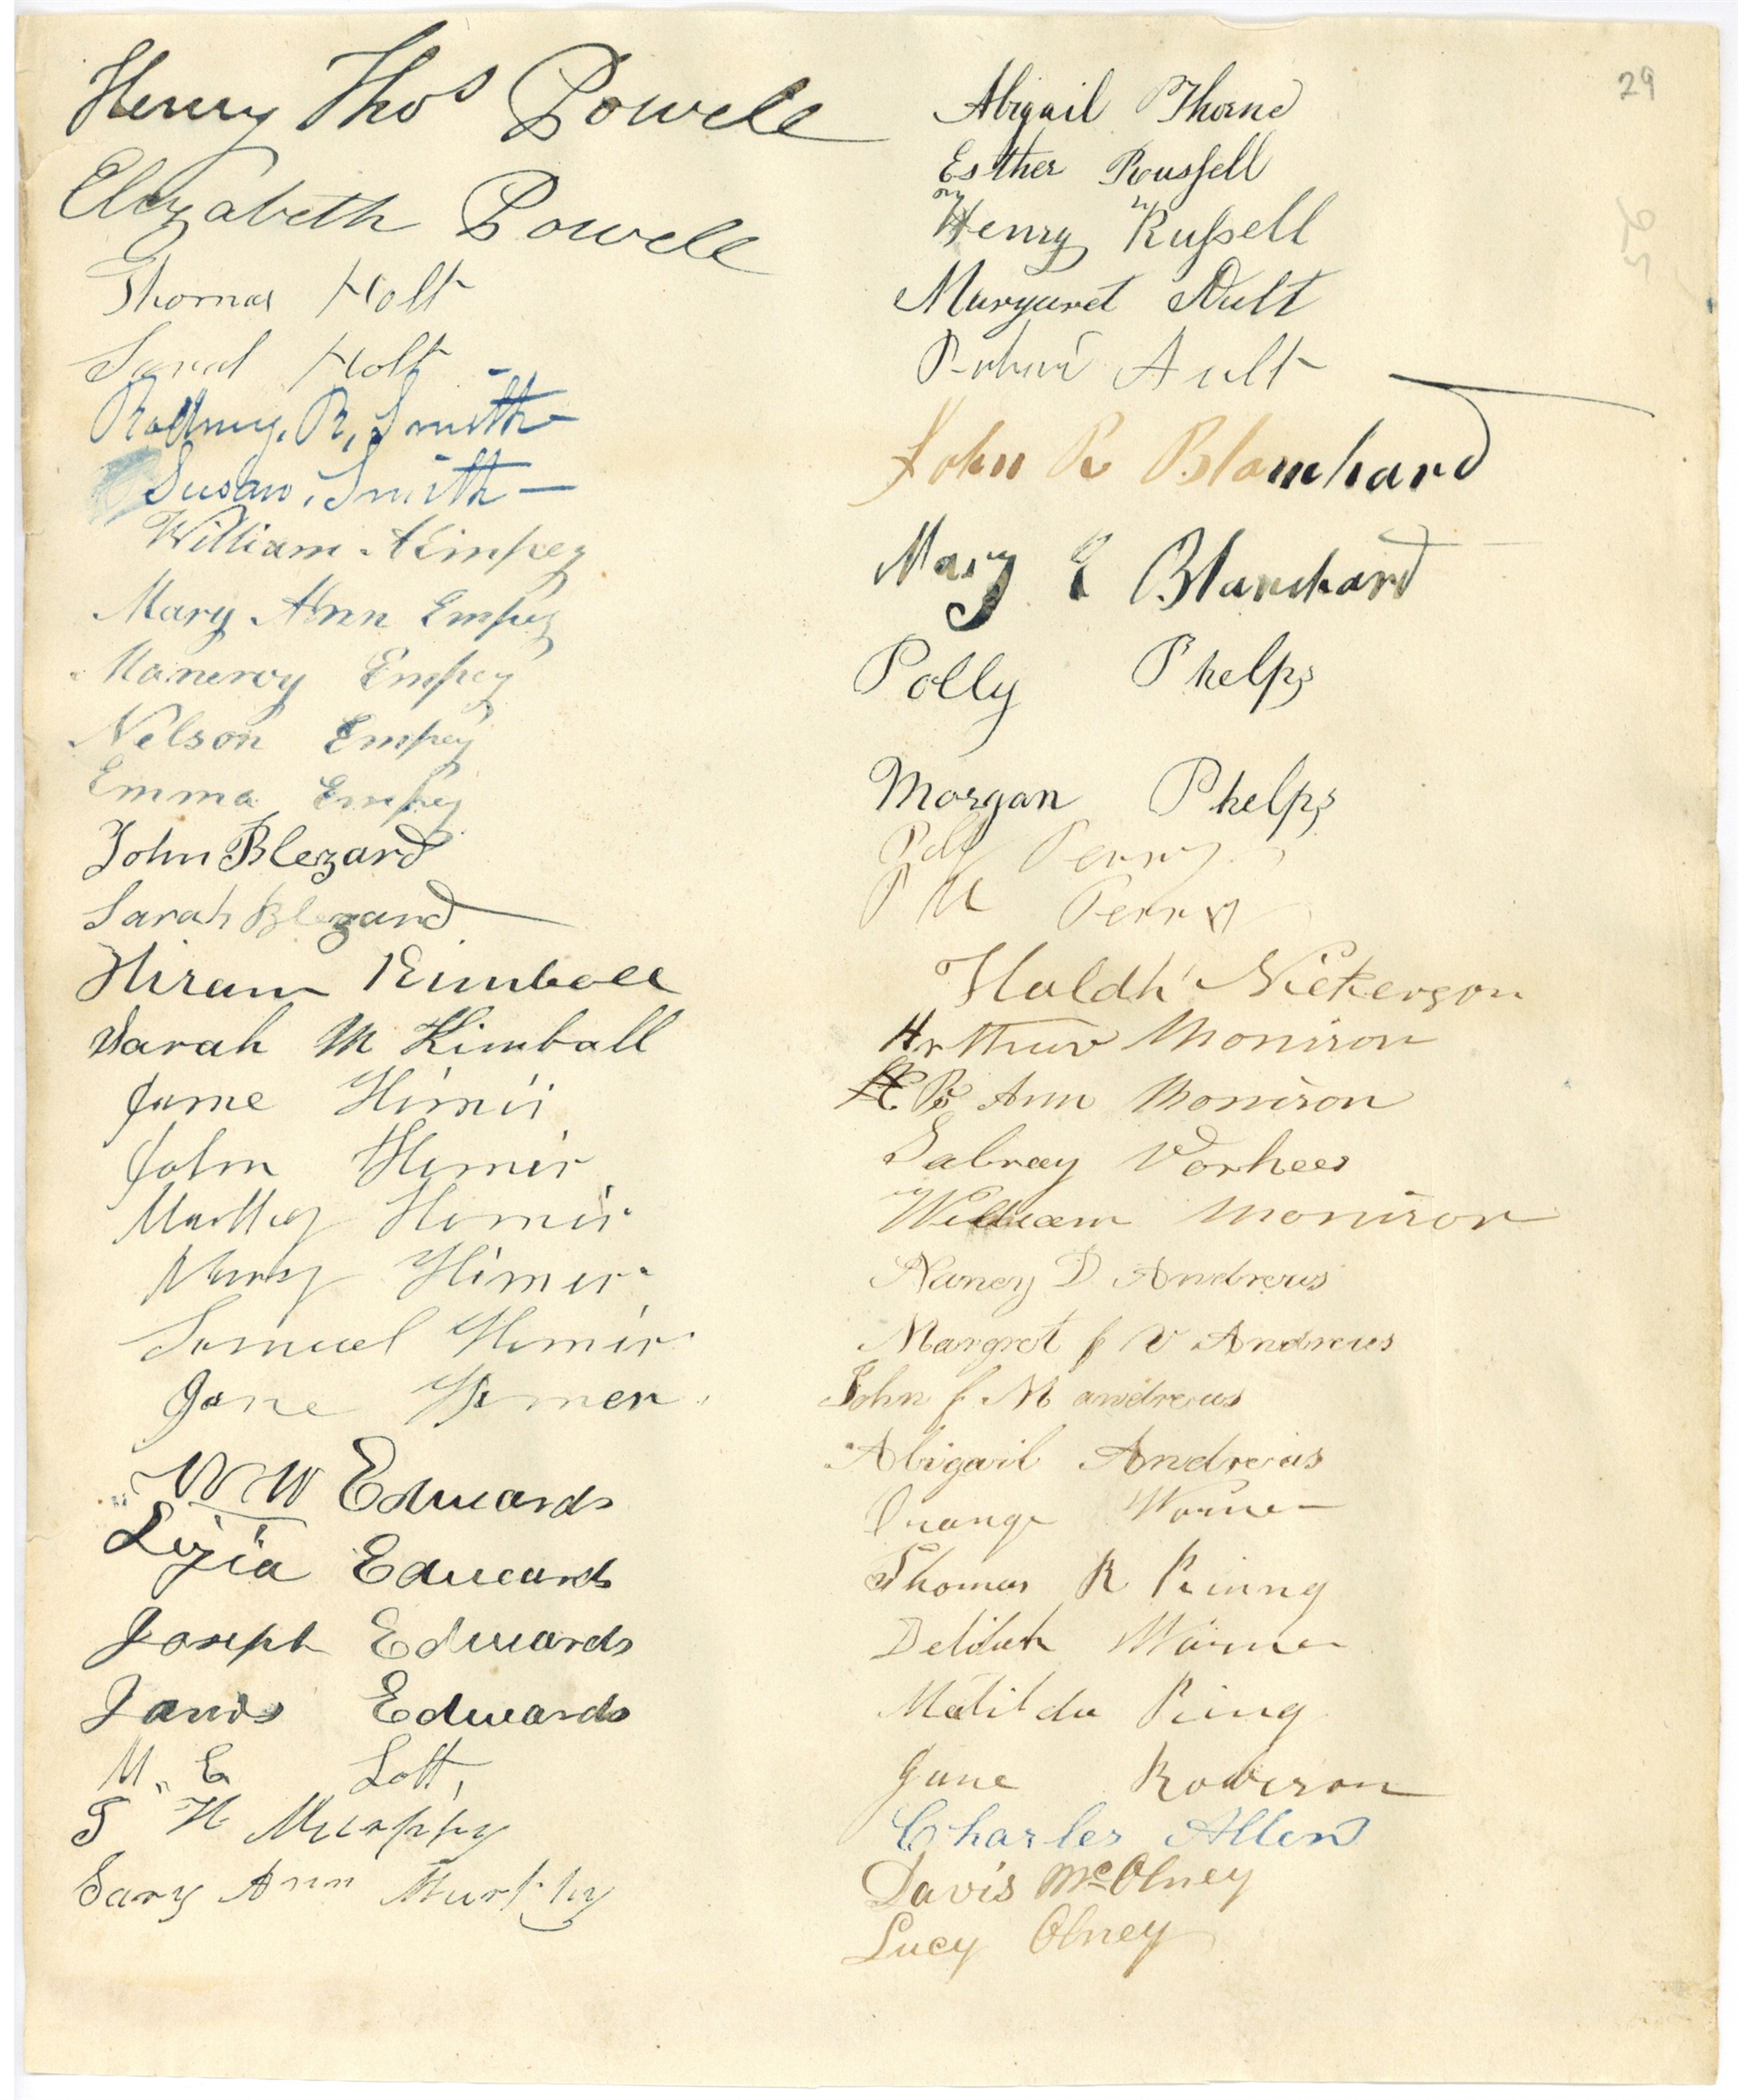 Henry Thos Powell
Elizabeth Powell
Thomas Holt
Holt
Rodney. R. Smith
Susan. Smith
William Aimpey
Mary Ann Empey
Manervy Empey
Nelson Empey
Emma Empey
John Blezard
Sarah Blezard
Hiram Kimball
Sarah M Kimball
Jame Himir
John Himir
Himir
Himir
Samuel Himir
Jane Himer
W W Edwards
Edwards
Joseph Edwards
Edwards
M. E Lott,
S H Murphy
Sary Ann Murphy
29
Abigail Thorne
Esther Roussell
Henry Russell
Margaret Ault
Ault
John R Blanchard
Mary E Blanchard
Polly Phelps
Morgan Phelps
Perry
P M Perry
Huldh Nickerson
Arthur Morrison
Ann Morrison
Sabray Vorhees
William Morrison
Nancy D Andrews
Margret J V Andrews
John J M andrews
Abigail Andrews
Orange Warner
Thomas R King
Delilah Warner
Matilda King
Jane Robison
Charles Allen
Davis McOlney
Lucy Olney